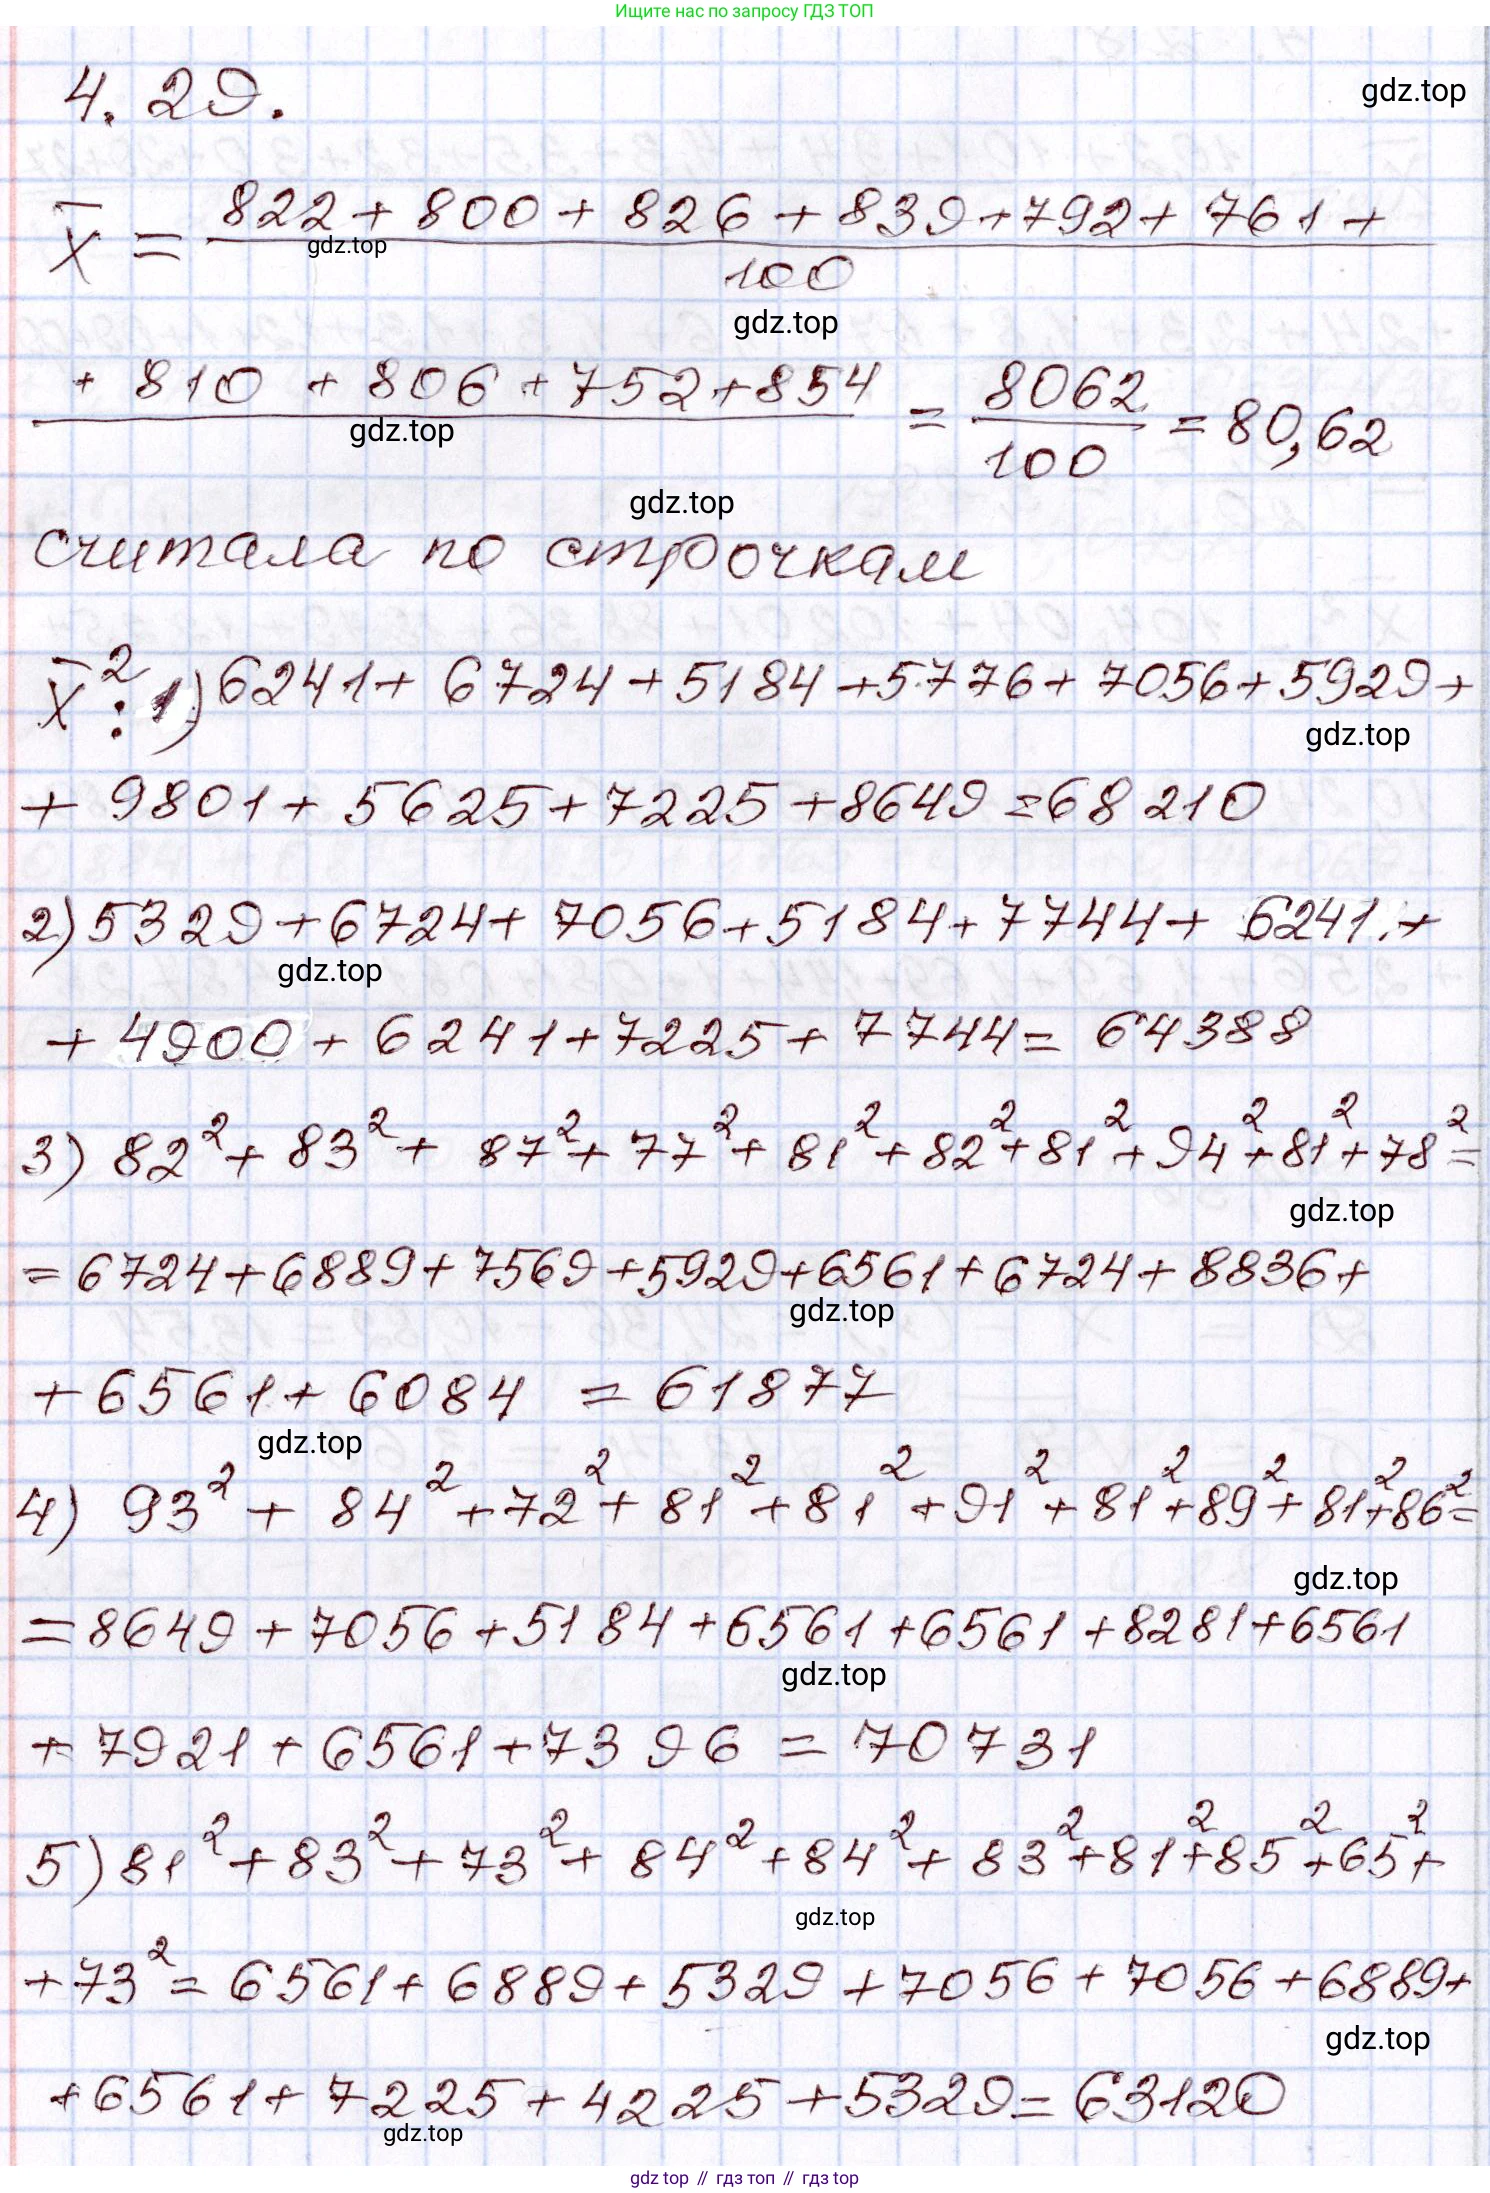 Ищите нас по запросу ГДЗ ТОП
4.29.
gdz.top
x̄ = 822 + 800 + 826 + 839 + 792 + 761 +
gdz.top
100
gdz.top
+ 810 + 806 + 752 + 854 = 8062 = 80,62
gdz.top
100
gdz.top
считала по строчкам
x̄²: 1) 6241 + 6724 + 5184 + 5776 + 7056 + 5929 +
gdz.top
+ 9801 + 5625 + 7225 + 8649 = 68210
2) 5329 + 6724 + 7056 + 5184 + 7744 + 6241 +
gdz.top
+ 4900 + 6241 + 7225 + 7744 = 64388
3) 82² + 83² + 87² + 77² + 81² + 82² + 81² + 94² + 81² + 78² =
gdz.top
= 6724 + 6889 + 7569 + 5929 + 6561 + 6724 + 8836 +
gdz.top
+ 6561 + 6084 = 61877
gdz.top
4) 93² + 84² + 72² + 81² + 81² + 91² + 81² + 89² + 81² + 86² =
gdz.top
= 8649 + 7056 + 5184 + 6561 + 6561 + 8281 + 6561
gdz.top
+ 7921 + 6561 + 7396 = 70731
5) 81² + 83² + 73² + 84² + 84² + 83² + 81² + 85² + 65² +
gdz.top
+ 73² = 6561 + 6889 + 5329 + 7056 + 7056 + 6889 +
gdz.top
+ 6561 + 7225 + 4225 + 5329 = 63120
gdz.top
gdz top // гдз топ // gdz top